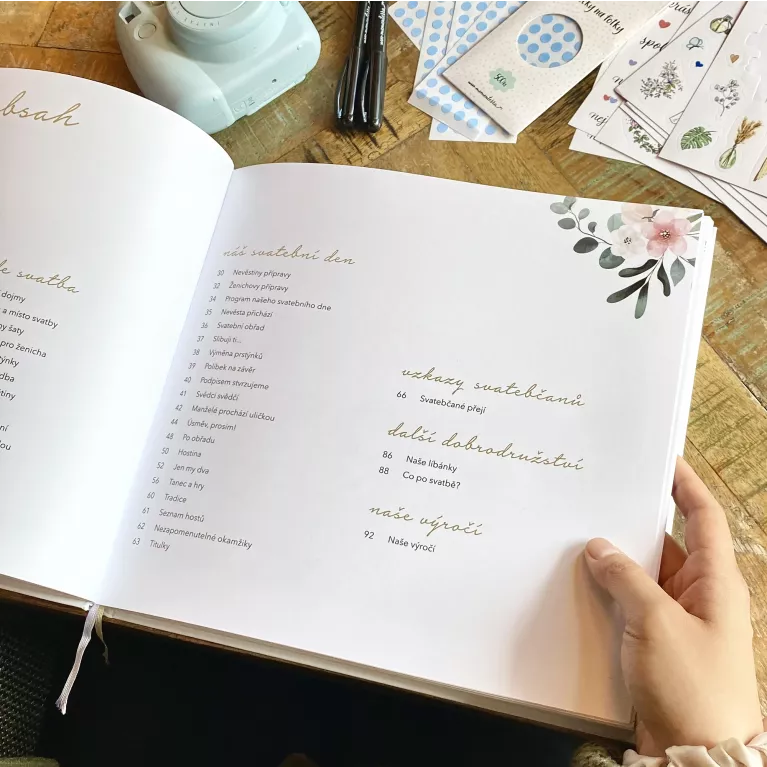 svatba
dojmy
a místo svatby
šaty
pro ženicha
náš svatební den
30 Nevěstiny přípravy
32 Ženichovy přípravy
34 Program našeho svatebního dne
35 Nevěsta přichází
36 Svatební obřad
37 Slibuji ti...
38 Výměna prstýnků
39 Polibek na závěr
40 Podpisem stvrzujeme
41 Svědci svědčí
42 Manželé prochází uličkou
44 Úsměv, prosím!
48 Po obřadu
50 Hostina
52 Jen my dva
56 Tanec a hry
60 Tradice
61 Seznam hostů
62 Nezapomenutelné okamžiky
63 Titulky
vzkazy svatebčanů
66 Svatebčané přejí
další dobrodružství
86 Naše líbánky
88 Co po svatbě?
naše výročí
92 Naše výročí